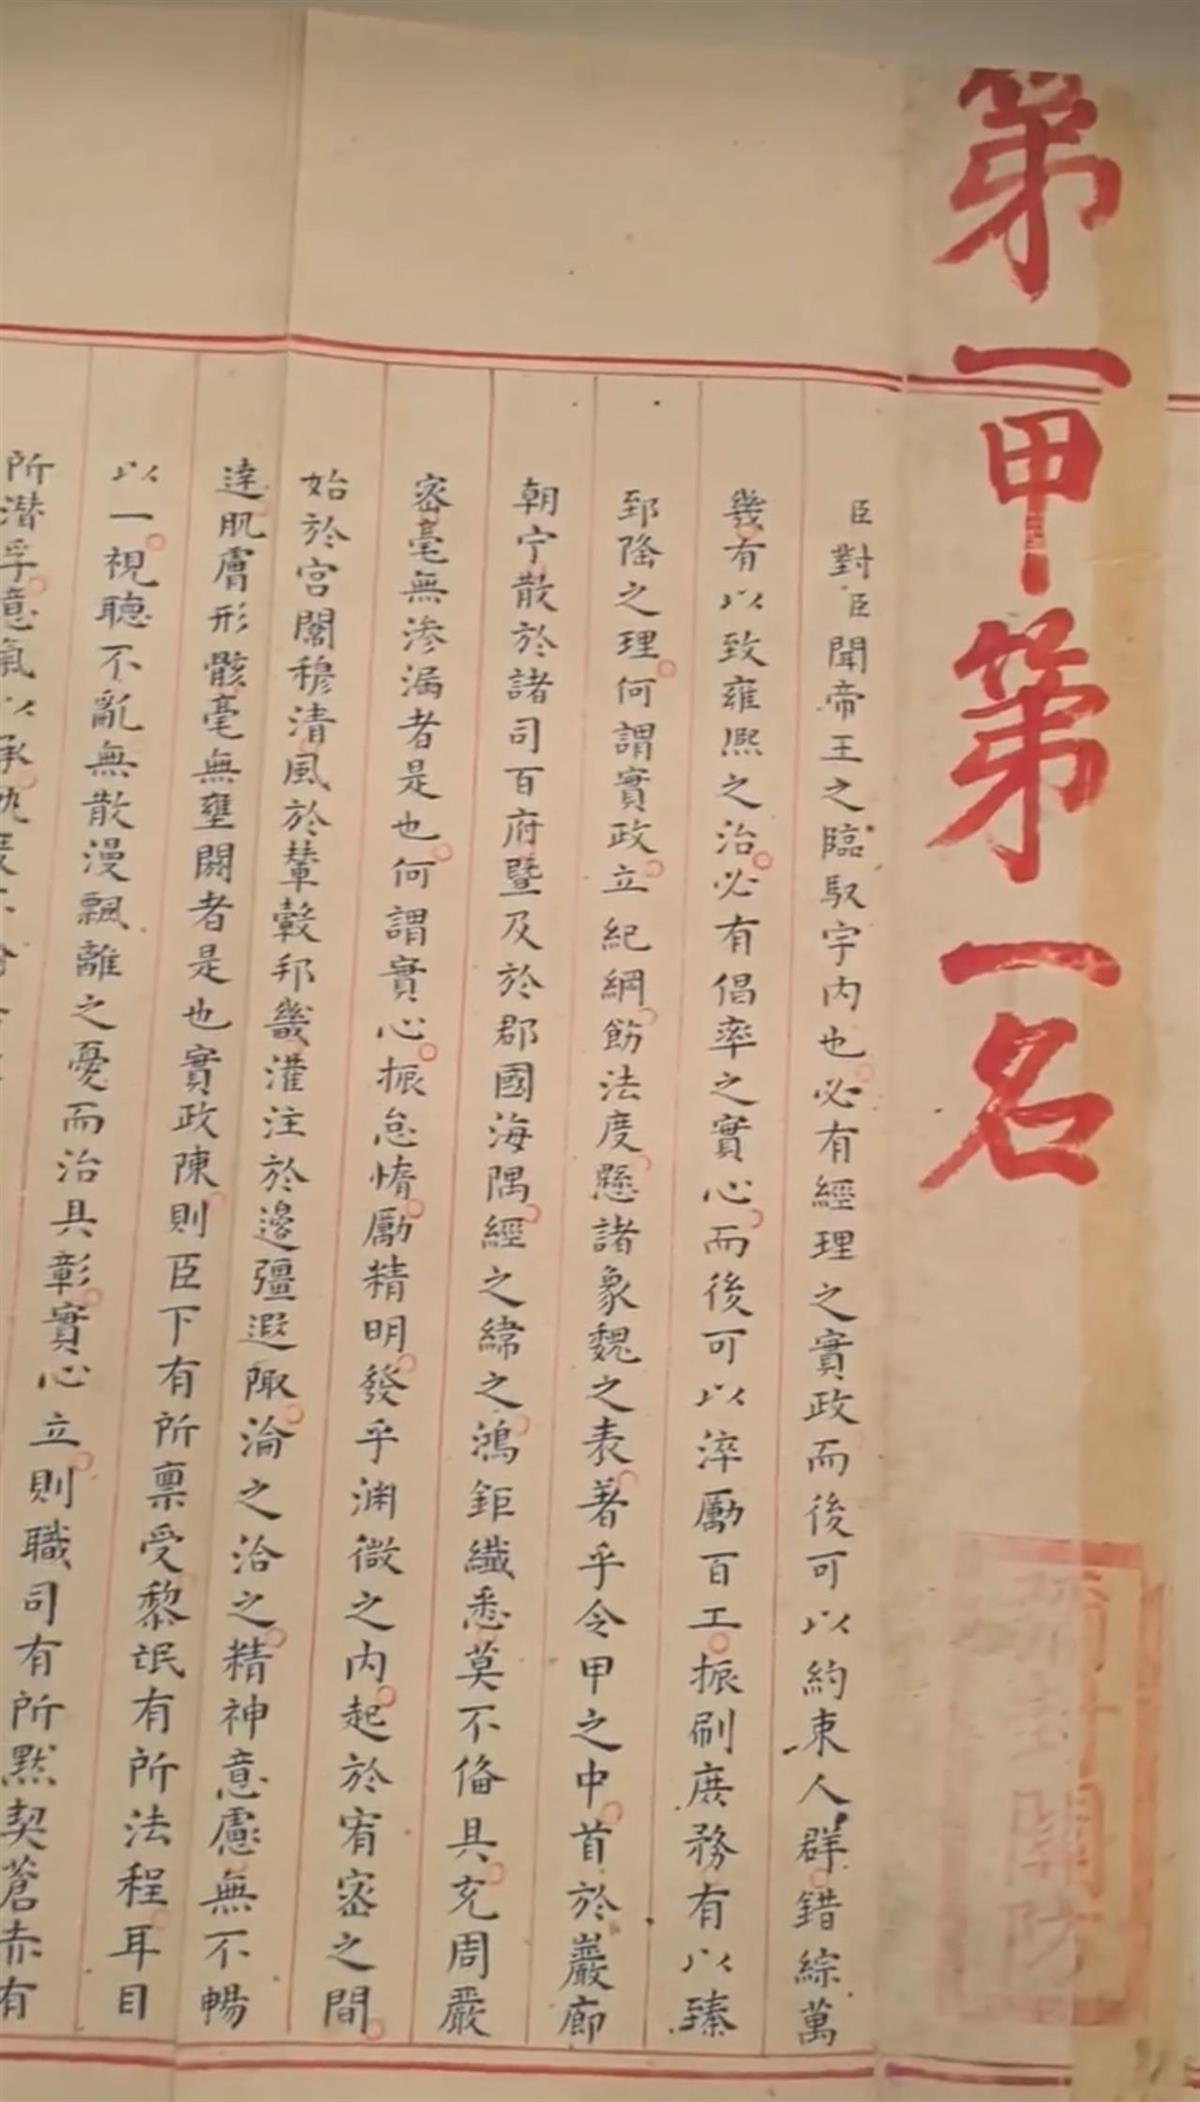 第一甲第一名
臣對臣聞帝王之臨馭宇內也必有經理之實政而後可以約束人群錯綜萬
幾有以致雍熙之治必有倡率之實心而後可以淬勵百工振刷庶務有以臻
郅隆之理何謂實政立紀綱飭法度懸諸象魏之表著乎令甲之中首於巖廊
朝宁散於諸司百府暨及於郡國海隅經之緯之鴻鉅纖悉莫不俻具充周嚴
密毫無滲漏者是也何謂實心振怠惰勵精明發乎渊微之內起於宥密之間
始於宮闈穆清風於輦轂邦畿灌注於邊疆遐陬淪之洽之精神意慮無不暢
達肌膚形骸毫無壅閼者是也實政陳則臣下有所禀受黎氓有所法程耳目
以一視聽不亂無散漫飄離之憂而治具彰實心立則職司有所默契蒼赤有
所潛孚意氣以承
關防